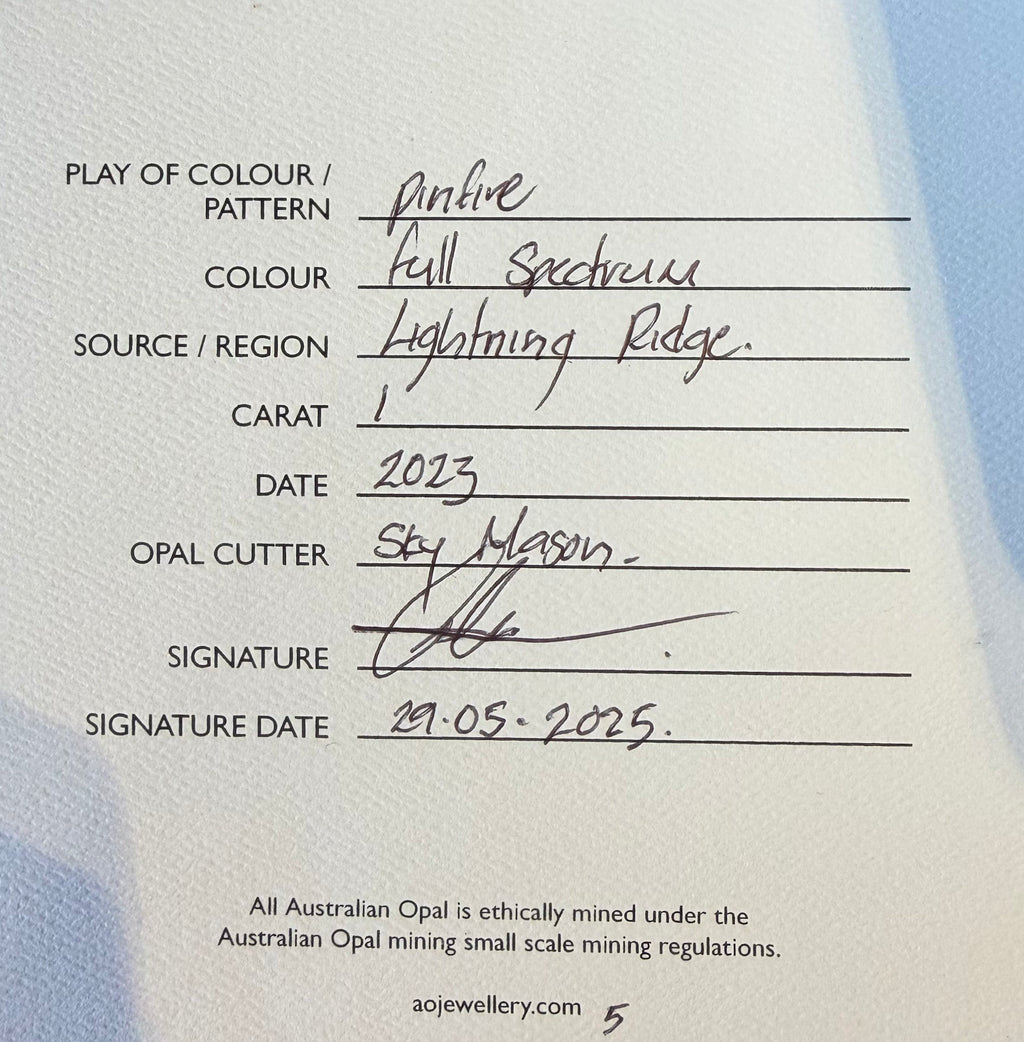 PLAY OF COLOUR /
PATTERN pinfire
COLOUR full Spectrum
SOURCE / REGION Lightning Ridge.
CARAT 1
DATE 2023
OPAL CUTTER Sky Mason.
SIGNATURE
SIGNATURE DATE 29.05.2025.
All Australian Opal is ethically mined under the
Australian Opal mining small scale mining regulations.
aojewellery.com 5